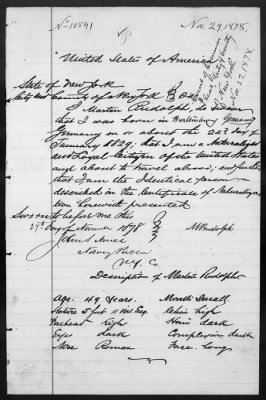 No 10541
Nov. 29, 1878.
United States of America
State of New York
City and County of New York } S.S.
I Martin Rudolph, do swear
that I was born in Wurtemburg Germany
Germany on or about the 22d day of
January 1829; that I am a Naturalized
and Loyal Citizen of the United States
and about to travel abroad; and further
that I am the identical person
described in the Certificate of Naturaliza
tion herewith presented
Sworn to before me this
27th day of November 1878
M Rudolph
Notary Public
N.Y. C.
Description of Martin Rudolph
Age. 49 Years. Mouth Small
Stature 5 feet 11 Inc Eng Chin high
Forehead high Hair dark
Eyes dark Complexion dark
Nose Roman Face Long